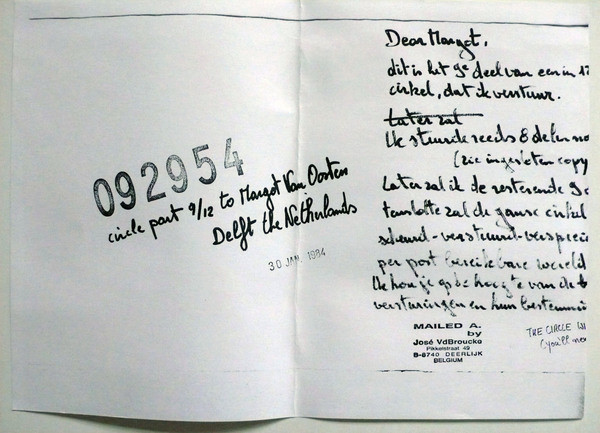 092954
circle part 9/12 to Margot Van Oosten
Delft the Netherlands
30 JAN. 1984
Dear Margot,
dit is het 9e deel van een in 12
cirkel, dat ik verstuur.
Later zal
Ik stuurde reeds 8 delen
(zie ingesloten copy
Later zal ik de resterende
tenslotte zal de ganse cirkel
scheurd-verstuurd-verspreid
per post bereikbare wereld
Ik hou je op de hoogte van de
versturingen en hun bestemmi
MAILED A.
by
José VdBroucke
Pikkelstraat 49
B-8740 DEERLIJK
BELGIUM
THE CIRCLE
(you'll